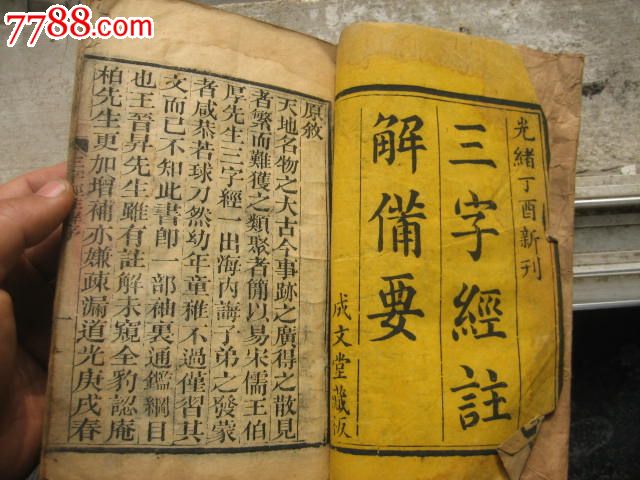 7788.com
光緒丁酉新刊
三字經註
解備要
成文堂藏板
原敘
天地名物之大古今事跡之廣得之散見
者繁而難獲之類聚者簡以易宋儒王伯
厚先生三字經一出海内誨子弟之發蒙
者咸恭若球刀然幼年童稚不過僅習其
文而已不知此書即一部袖裏通鑑綱目
也王晉昇先生雖有註解未窺全豹認庵
柏先生更加增補亦嫌疎漏道光庚戌春